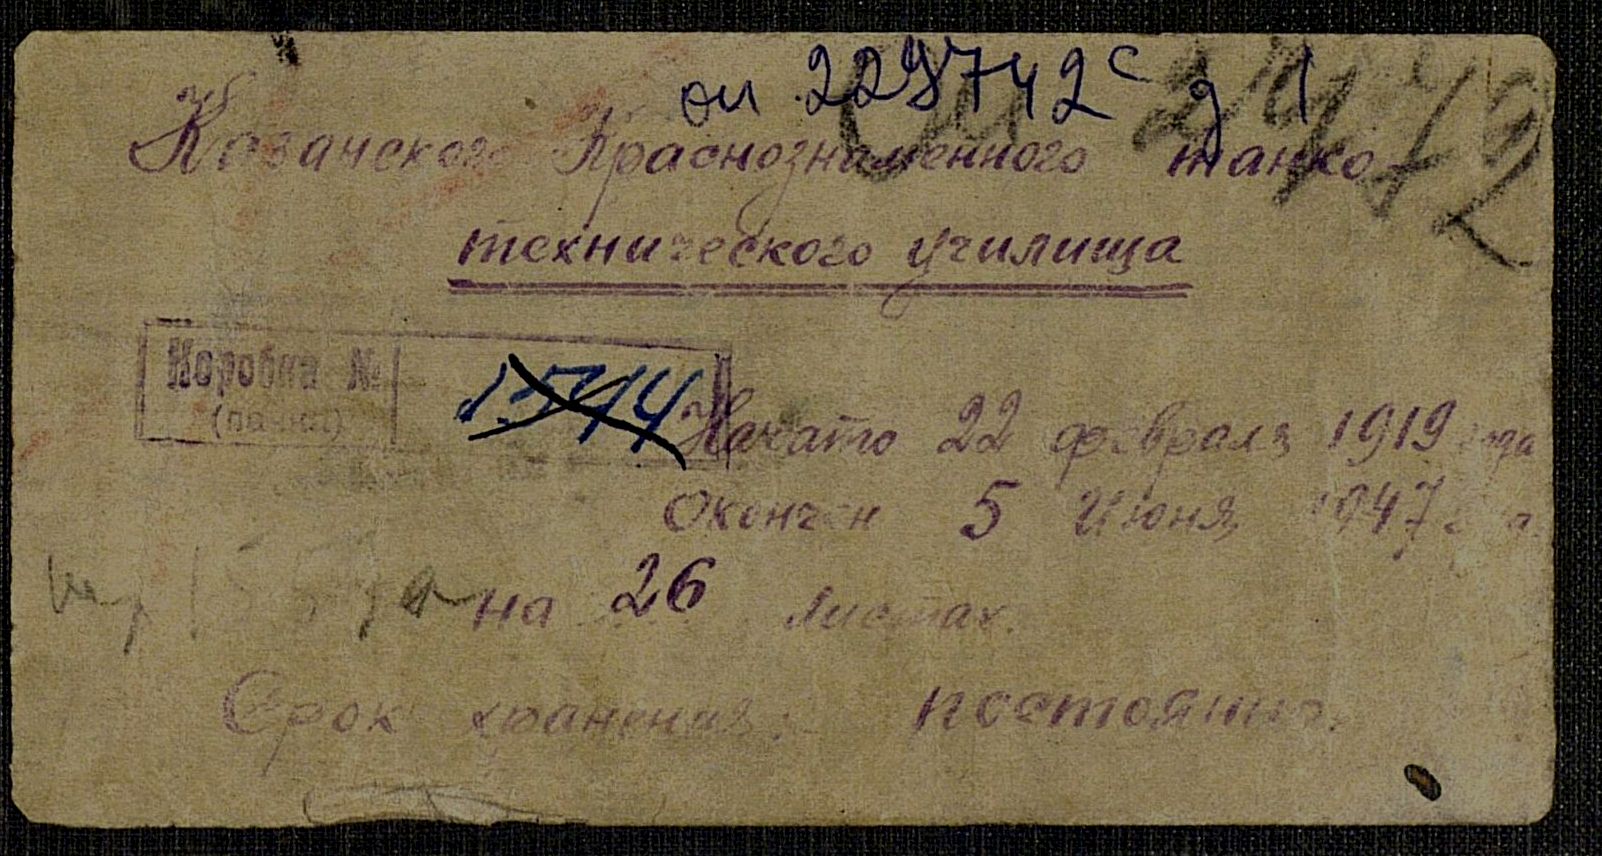 оп 229742с д 1
Казанского Краснознаменного танко-
технического училища
Коробка №
1514
Начато 22 февраля 1919 года
Окончен 5 Июня 1947 года.
на 26 листах.
Срок хранения: постоянно.